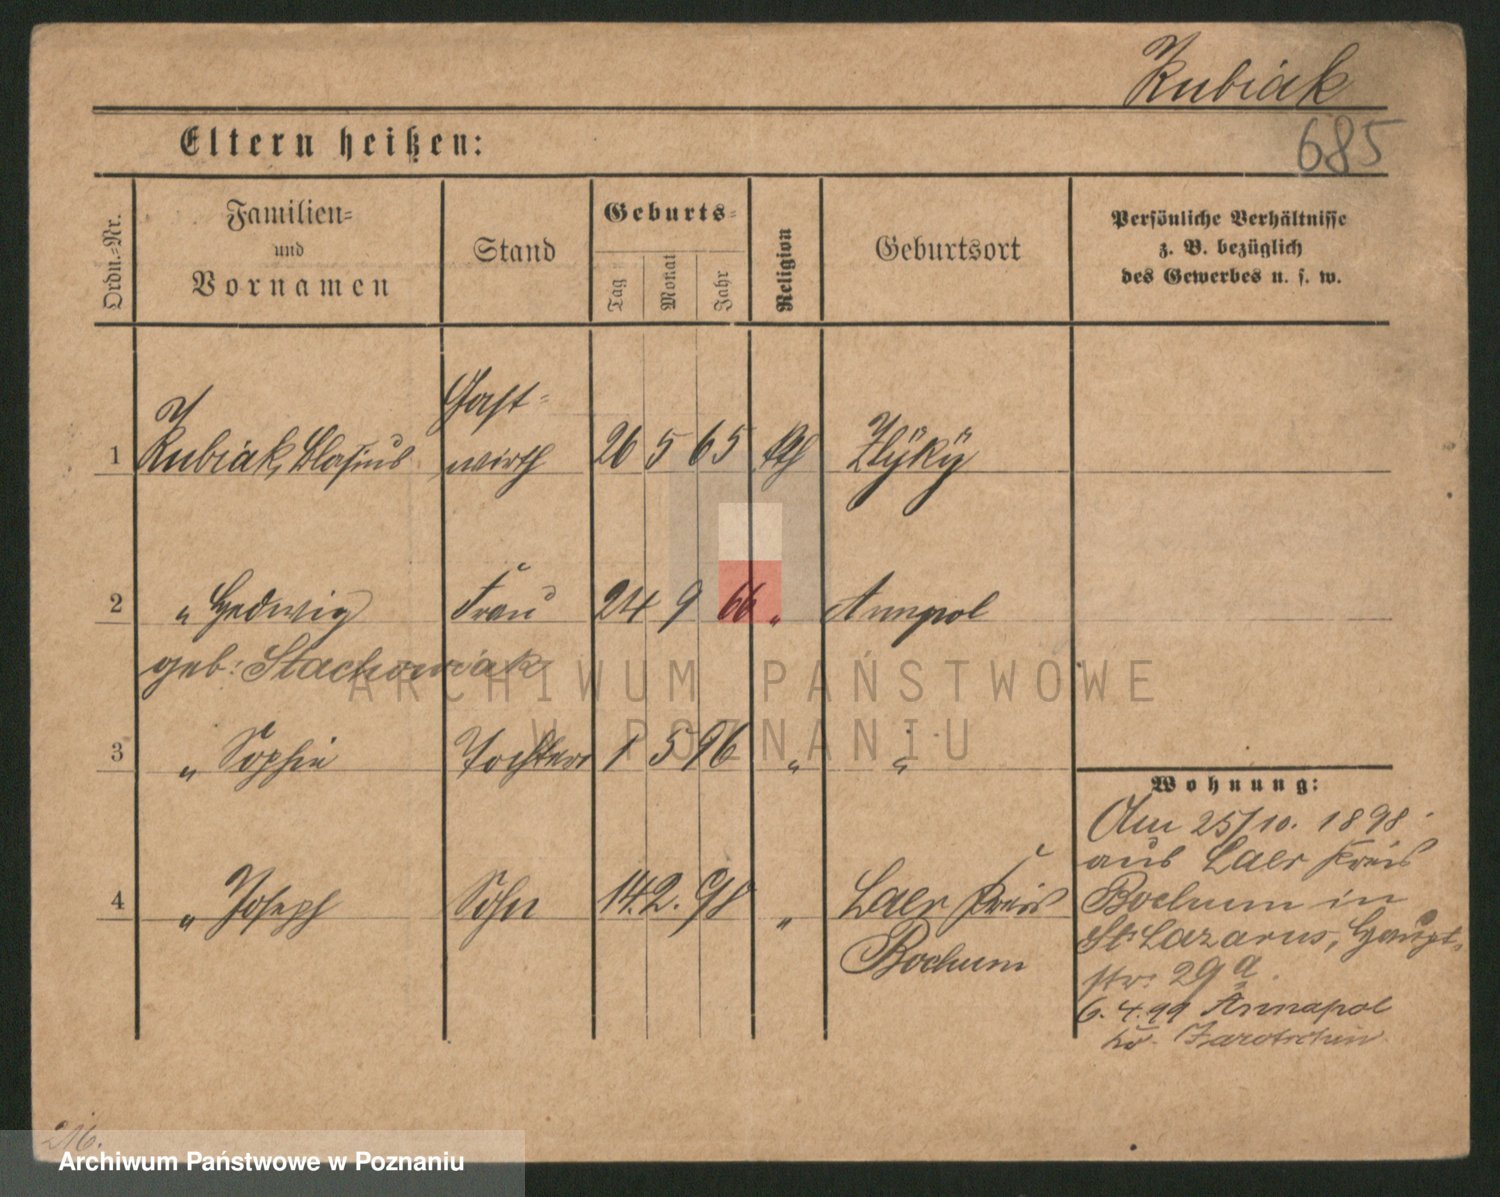 Kubiak
685
Eltern heißen:
Ordn.-Nr.
Familien-
und
Vornamen
Stand
Geburts-
Tag
Monat
Jahr
Religion
Geburtsort
Persönliche Verhältnisse
z. B. bezüglich
des Gewerbes u. s. w.
Gast-
1 Kubiak, Blasius wirth 26 5 65 kth
2 " Hedwig Frau 24 9 66 " Annapol
geb: Stachowiak
3 " Sophie Tochter 1 5 96 " "
4 " Joseph Sohn 14. 2. 98 " Laer Kreis
Bochum
Wohnung:
Am 25/10. 1898.
aus Laer Kreis
Bochum in
St Lazarus, Haupt-
str: 29a.
6. 4. 99 Annapol
Kr. Jarotschin
216.
ARCHIWUM PAŃSTWOWE
W POZNANIU
Archiwum Państwowe w Poznaniu